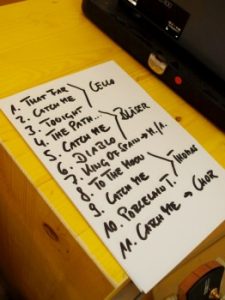 1. THAT FAR
2. CATCH ME
3. TONIGHT..
4. THE PATH...
5. CATCH ME
6. DIABLO
7. KING OF SPAIN
8. TO THE MOON
9. CATCH ME
10. PORCELAIN T.
11. CATCH ME → CHOR
CELLO
BLÄSER
THOMAS